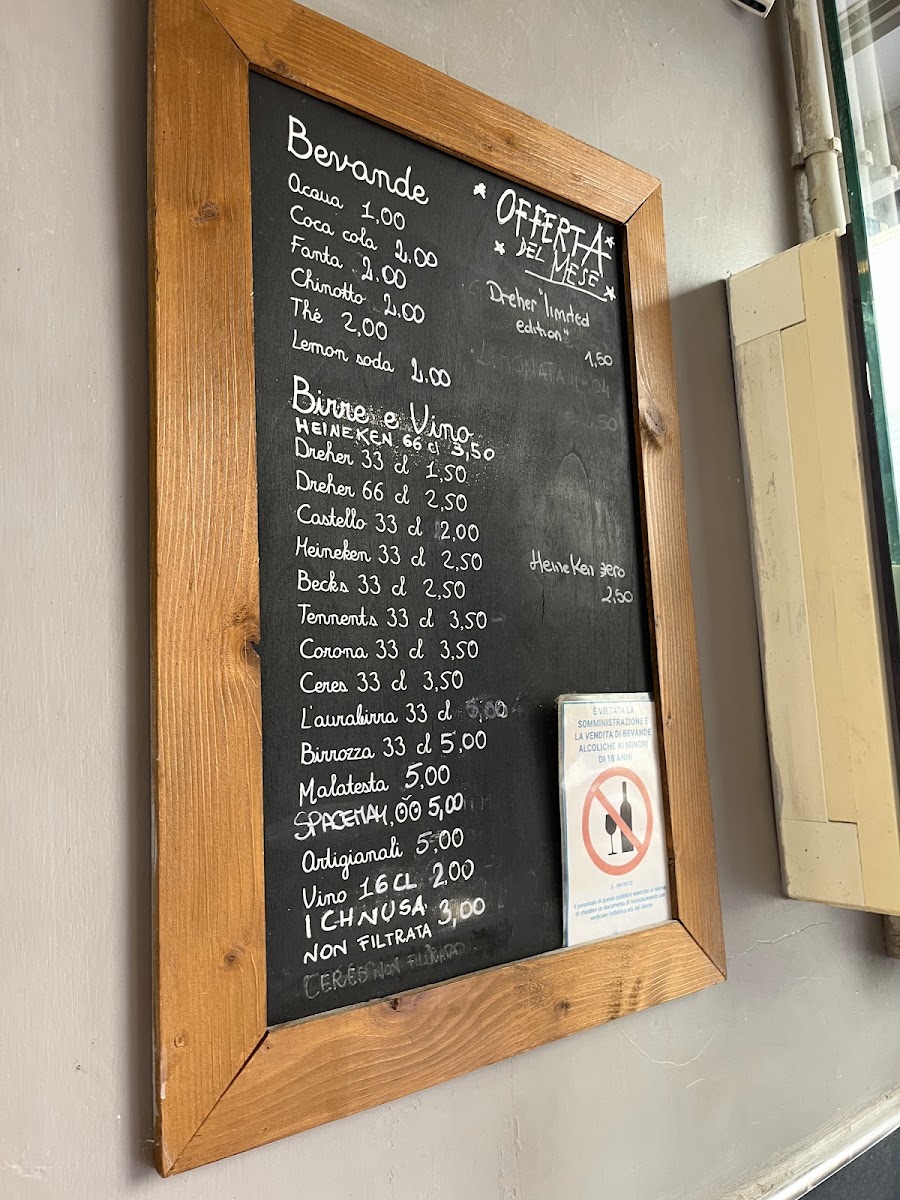 Bevande
Acqua 1,00
Coca cola 2,00
Fanta 2,00
Chinotto 2,00
Thé 2,00
Lemon soda 2,00
Birre e Vino
HEINEKEN 66 cl 3,50
Dreher 33 cl 1,50
Dreher 66 cl 2,50
Castello 33 cl 2,00
Heineken 33 cl 2,50
Becks 33 cl 2,50
Tennents 33 cl 3,50
Corona 33 cl 3,50
Ceres 33 cl 3,50
L'aurabirra 33 cl 5,00
Birrozza 33 cl 5,00
Malatesta 5,00
SPACEMAN 5,00
Artigianali 5,00
Vino 16 CL 2,00
ICHNUSA
NON FILTRATA 3,00
CERES NON FILTRATA
OFFERTA
DEL MESE
Dreher "limited
edition"
1,50
Heineken zero
2,50
È VIETATA LA
SOMMINISTRAZIONE E
LA VENDITA DI BEVANDE
ALCOLICHE AI MINORI
DI 18 ANNI
Il personale di questo pubblico esercizio si riserva
di chiedere un documento di riconoscimento per
verificare l'effettiva età del cliente